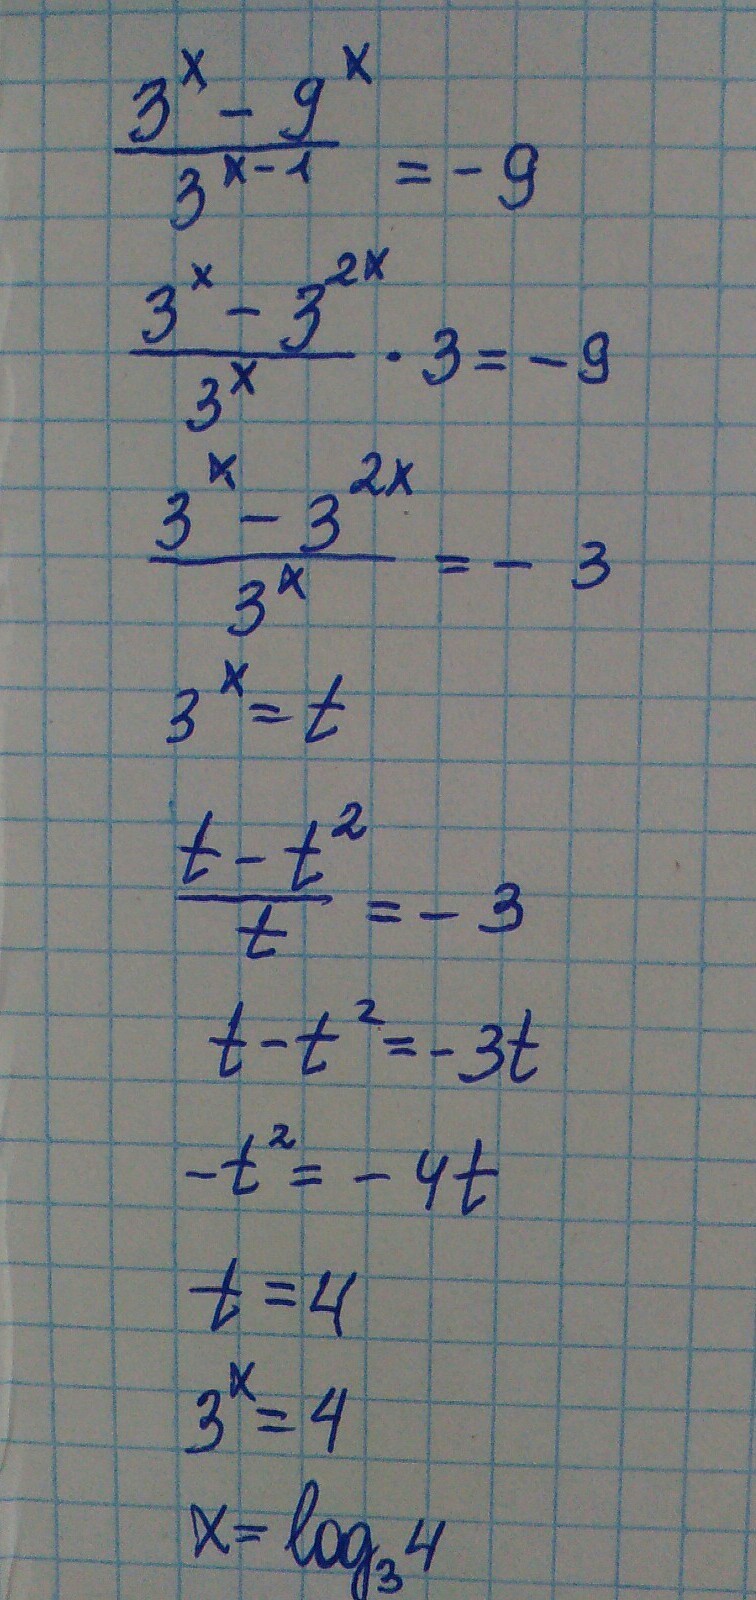 (3^x - 9^x) / 3^(x-1) = -9
(3^x - 3^(2x)) / 3^x · 3 = -9
(3^x - 3^(2x)) / 3^x = - 3
3^x = t
(t - t^2) / t = - 3
t - t^2 = -3t
-t^2 = - 4t
t = 4
3^x = 4
x = log_3 4